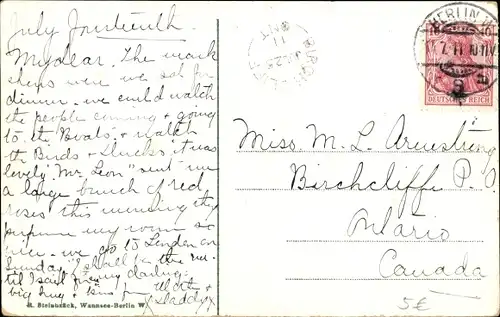 July fourteenth
My dear. The mark
shews were we sat for
dinner - we could watch
the people coming & going
to the Boats, & watch
the Birds & Ducks it was
lovely. "Mr. Leon" sent me
a large bunch of red
roses this morning they
perfume my room so
nice - we go to London on
Sunday I shall be there
til I sail for my darling
big hug & kiss from
Mother &
Daddy
R. Steinbrück, Wannsee-Berlin W.
Miss M. L. Armstrong
Birchcliffe P.O
Ontario
Canada
5€
BERLIN W
10 10
7.11 10-11V
9 a
DEUTSCHES REICH
ONT
11